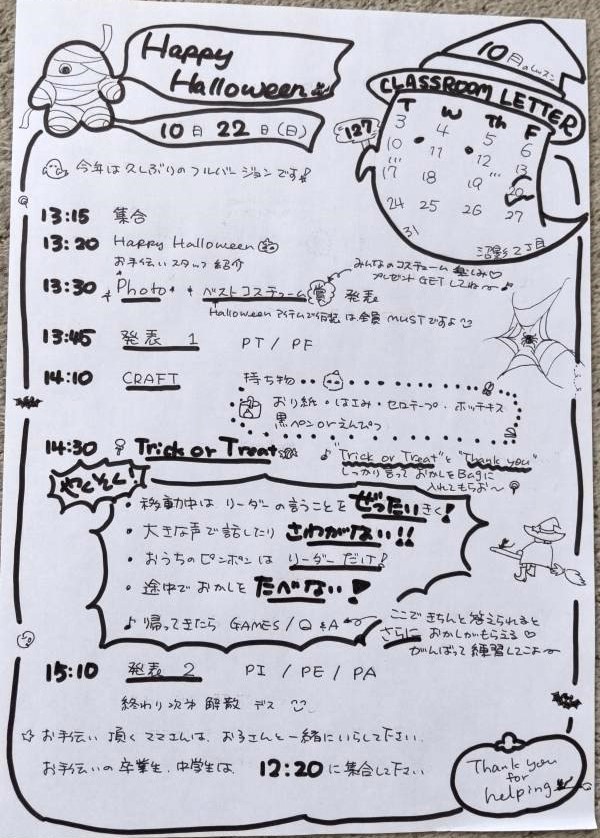 Happy
Halloween
10月 22日(日)
10月のレッスン
CLASSROOM LETTER
127
T W Th F
3 4 5 6
10 11 12 13
17 18 19 20
24 25 26 27
31
沼影2丁目
今年は久しぶりのフルバージョンです!
13:15 集合
13:20 Happy Halloween
お手伝いスタッフ紹介
みんなのコスチューム楽しみ♡
プレゼントGETしてね〜♪
13:30 Photo + ベストコスチューム賞 発表
Halloweenアイテムで仮装は全員MUSTですよ
13:45 発表 1 PT / PF
14:10 CRAFT
持ち物
おり紙・はさみ・セロテープ・ホッチキス
黒ペンorえんぴつ
14:30 Trick or Treat
♪"Trick or Treat"と"Thank you"
しっかり言っておかしをBagに
入れてもらお〜
やくそく!
・移動中はリーダーの言うことをぜったいきく!
・大きな声で話したりさわがない!!
・おうちのピンポンはリーダーだけ!
・途中でおかしをたべない!
♪帰ってきたら GAMES / Q&A
ここできちんと答えられると
さらにおかしがもらえる♡
がんばって練習してこよ〜
15:10 発表 2 PI / PE / PA
終わり次第解散デス
☆お手伝い頂くママさんは、お子さんと一緒にいらして下さい.
お手伝いの卒業生、中学生は、12:20に集合して下さい
Thank you
for
helping